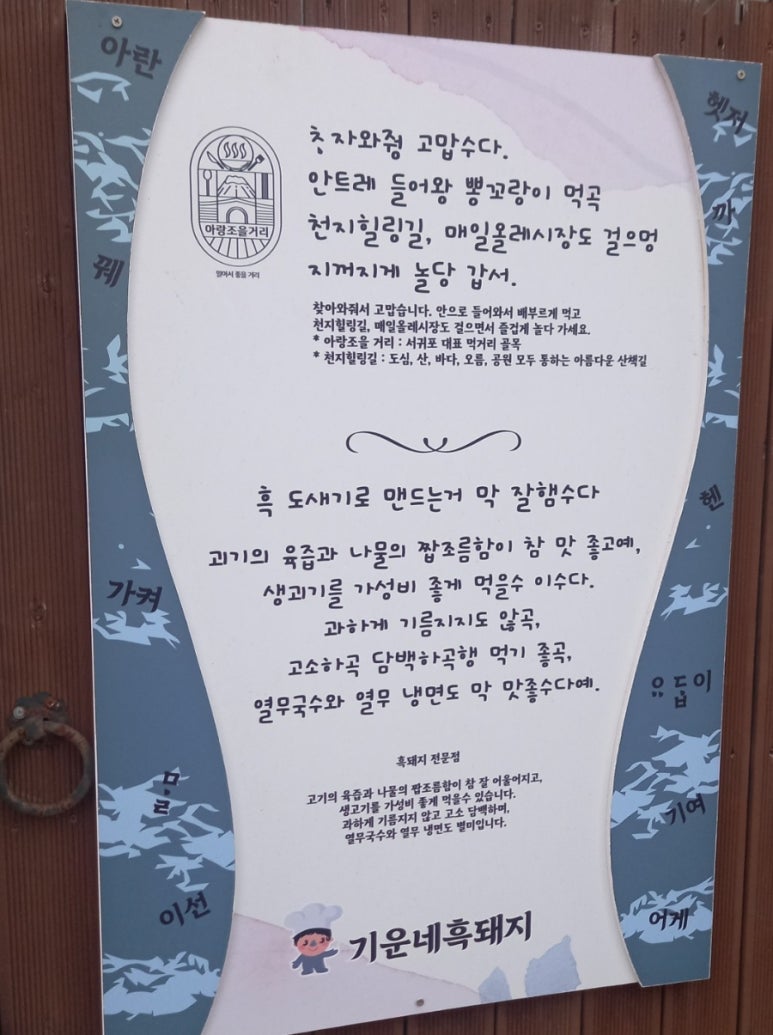 아란
꿰
가켜
ᄆᆞᆯ
이선
헷저
까
헨
ᄋᆢ답이
기여
어게
아랑조을거리
알아서 좋을 거리
ᄎᆞᆽ자와줭 고맙수다.
안트레 들어왕 뽕꼬랑이 먹곡
천지힐링길, 매일올레시장도 걸으멍
지꺼지게 놀당 갑서.
찾아와줘서 고맙습니다. 안으로 들어와서 배부르게 먹고
천지힐링길, 매일올레시장도 걸으면서 즐겁게 놀다 가세요.
* 아랑조을 거리 : 서귀포 대표 먹거리 골목
* 천지힐링길 : 도심, 산, 바다, 오름, 공원 모두 통하는 아름다운 산책길
흑 도새기로 맨드는거 막 잘햄수다
괴기의 육즙과 나물의 짭조름함이 참 맛 좋고예,
생괴기를 가성비 좋게 먹을수 이수다.
과하게 기름지지도 않곡,
고소하곡 담백하곡행 먹기 좋곡,
열무국수와 열무 냉면도 막 맛좋수다예.
흑돼지 전문점
고기의 육즙과 나물의 짭조름함이 참 잘 어울어지고,
생고기를 가성비 좋게 먹을수 있습니다.
과하게 기름지지 않고 고소 담백하며,
열무국수와 열무 냉면도 별미입니다.
기운네흑돼지